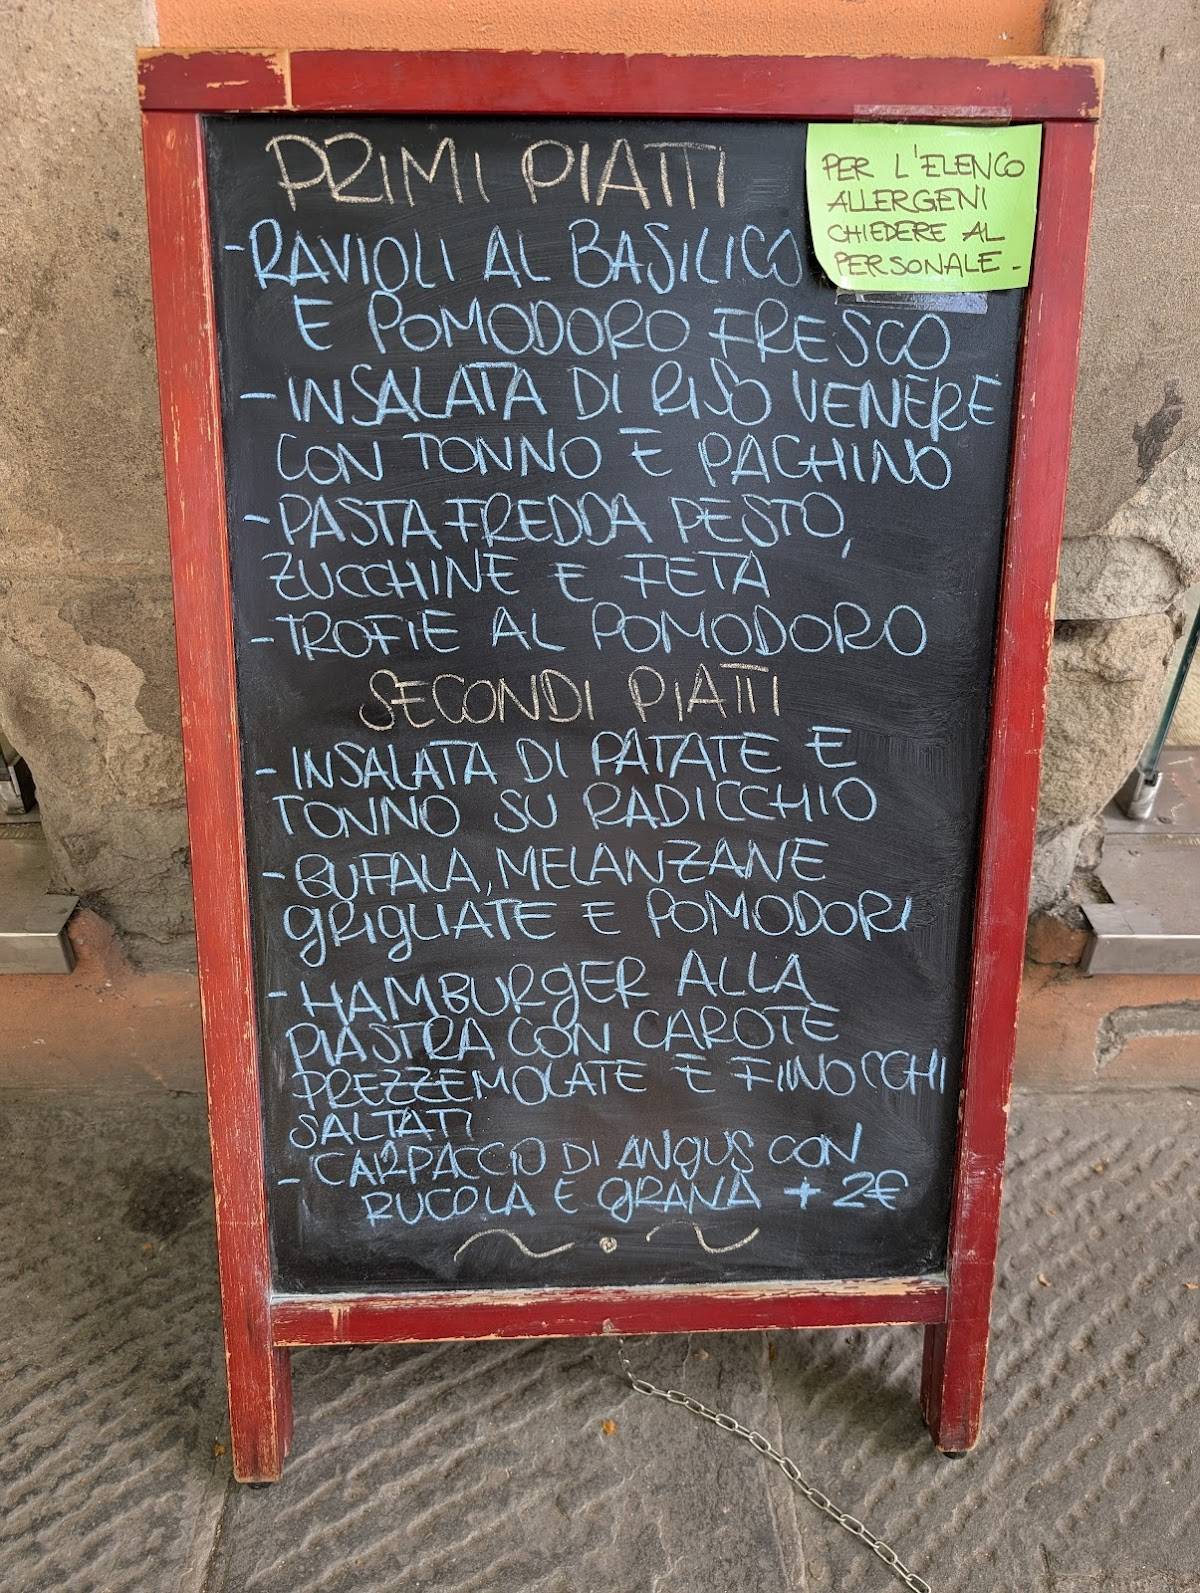 PRIMI PIATTI
PER L'ELENCO
ALLERGENI
CHIEDERE AL
PERSONALE.
- RAVIOLI AL BASILICO
E POMODORO FRESCO
- INSALATA DI RISO VENERE
CON TONNO E PACHINO
- PASTA FREDDA PESTO,
ZUCCHINE E FETA
- TROFIE AL POMODORO
SECONDI PIATTI
- INSALATA DI PATATE E
TONNO SU RADICCHIO
- BUFALA, MELANZANE
GRIGLIATE E POMODORI
- HAMBURGER ALLA
PIASTRA CON CAROTE
PREZZEMOLATE E FINOCCHI
SALTATI
- CARPACCIO DI ANGUS CON
RUCOLA E GRANA + 2€